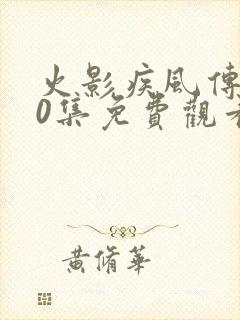 火影疾风傳
0集免費觀看
黃脩華